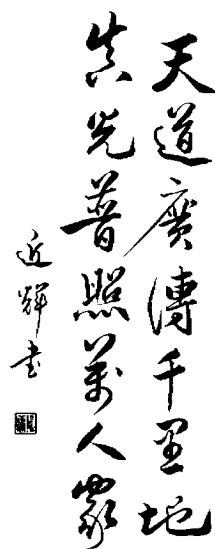 天道廣傳千里地
真光普照萬人家
近輝书